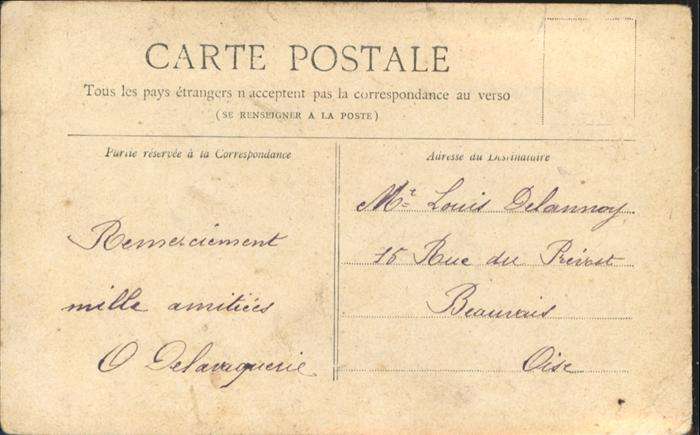 CARTE POSTALE
Tous les pays étrangers n'acceptent pas la correspondance au verso
(SE RENSEIGNER A LA POSTE)
Partie réservée à la Correspondance
Remerciement
mille amitiées
O Delavaquerie
Adresse du Destinataire
Mr Louis Delannoy
15 Rue du Prévot
Beauvais
Oise